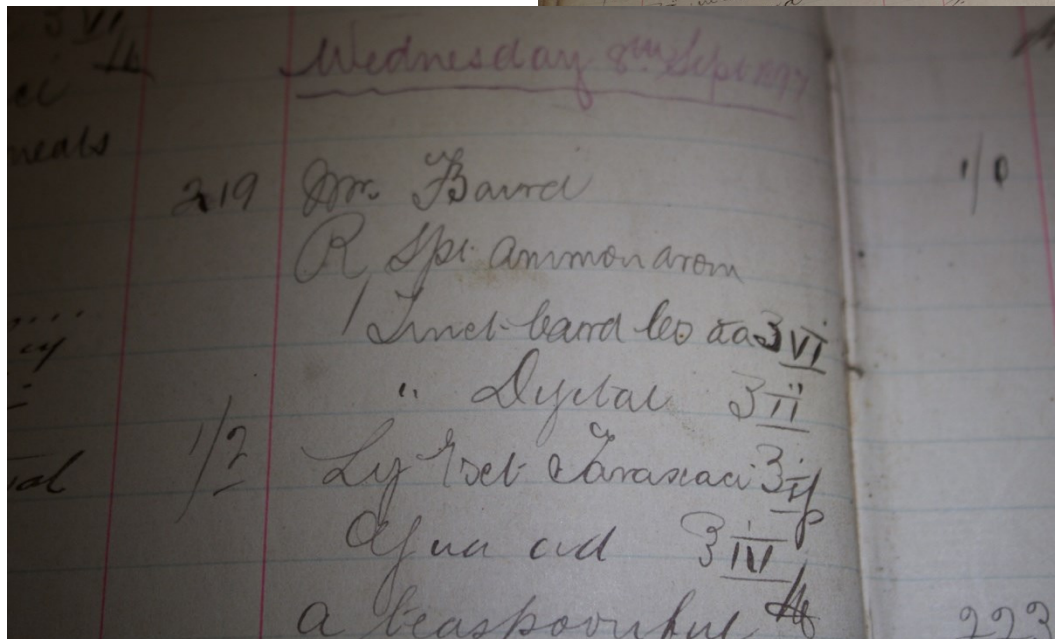 Wednesday 8th Sept 1897
219 Mr. Baird 1/0
R Spt. Ammon arom
Tinct. Card Co aa ʒ vi
" Dygtal ʒ ii
1/2 Liq Ext. Taraxaci ʒ
Aqua ad ℥ iv
a teaspoonful 223
neats